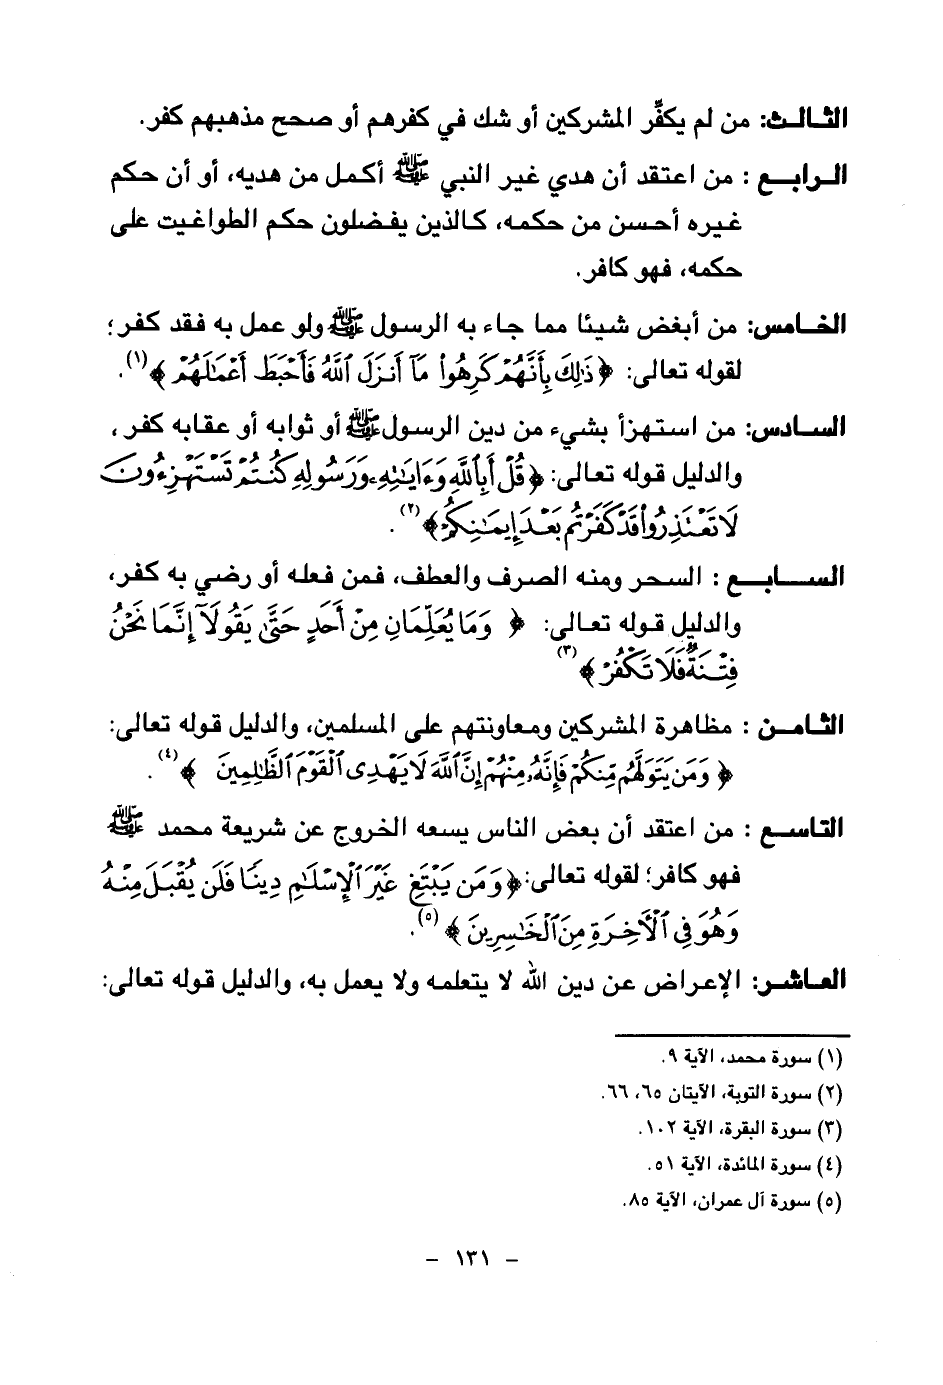 الثالث: من لم يكفِّر المشركين أو شك في كفرهم أو صحح مذهبهم كفر.
الرابع : من اعتقد أن هدي غير النبي ﷺ أكمل من هديه، أو أن حكم
غيره أحسن من حكمه، كالذين يفضلون حكم الطواغيت على
حكمه، فهو كافر.
الخامس: من أبغض شيئا مما جاء به الرسول ﷺ ولو عمل به فقد كفر؛
لقوله تعالى: ﴿ذَٰلِكَ بِأَنَّهُمْ كَرِهُوا۟ مَآ أَنزَلَ ٱللَّهُ فَأَحْبَطَ أَعْمَٰلَهُمْ﴾(١).
السادس: من استهزأ بشيء من دين الرسول ﷺ أو ثوابه أو عقابه كفر،
والدليل قوله تعالى: ﴿قُلْ أَبِٱللَّهِ وَءَايَٰتِهِۦ وَرَسُولِهِۦ كُنتُمْ تَسْتَهْزِءُونَ
لَا تَعْتَذِرُوا۟ قَدْ كَفَرْتُم بَعْدَ إِيمَٰنِكُمْ﴾(٢).
السابع : السحر ومنه الصرف والعطف، فمن فعله أو رضي به كفر،
والدليل قوله تعالى: ﴿ وَمَا يُعَلِّمَانِ مِنْ أَحَدٍ حَتَّىٰ يَقُولَآ إِنَّمَا نَحْنُ
فِتْنَةٌ فَلَا تَكْفُرْ ﴾(٣)
الثامن : مظاهرة المشركين ومعاونتهم على المسلمين، والدليل قوله تعالى:
﴿ وَمَن يَتَوَلَّهُم مِّنكُمْ فَإِنَّهُۥ مِنْهُمْ إِنَّ ٱللَّهَ لَا يَهْدِى ٱلْقَوْمَ ٱلظَّٰلِمِينَ ﴾(٤).
التاسع : من اعتقد أن بعض الناس يسعه الخروج عن شريعة محمد ﷺ
فهو كافر؛ لقوله تعالى: ﴿وَمَن يَبْتَغِ غَيْرَ ٱلْإِسْلَٰمِ دِينًا فَلَن يُقْبَلَ مِنْهُ
وَهُوَ فِى ٱلْءَاخِرَةِ مِنَ ٱلْخَٰسِرِينَ ﴾(٥).
العاشر: الإعراض عن دين الله لا يتعلمه ولا يعمل به، والدليل قوله تعالى:
(١) سورة محمد، الآية ٩.
(٢) سورة التوبة، الآيتان ٦٥، ٦٦.
(٣) سورة البقرة، الآية ١٠٢.
(٤) سورة المائدة، الآية ٥١.
(٥) سورة آل عمران، الآية ٨٥.
- ١٣١ -